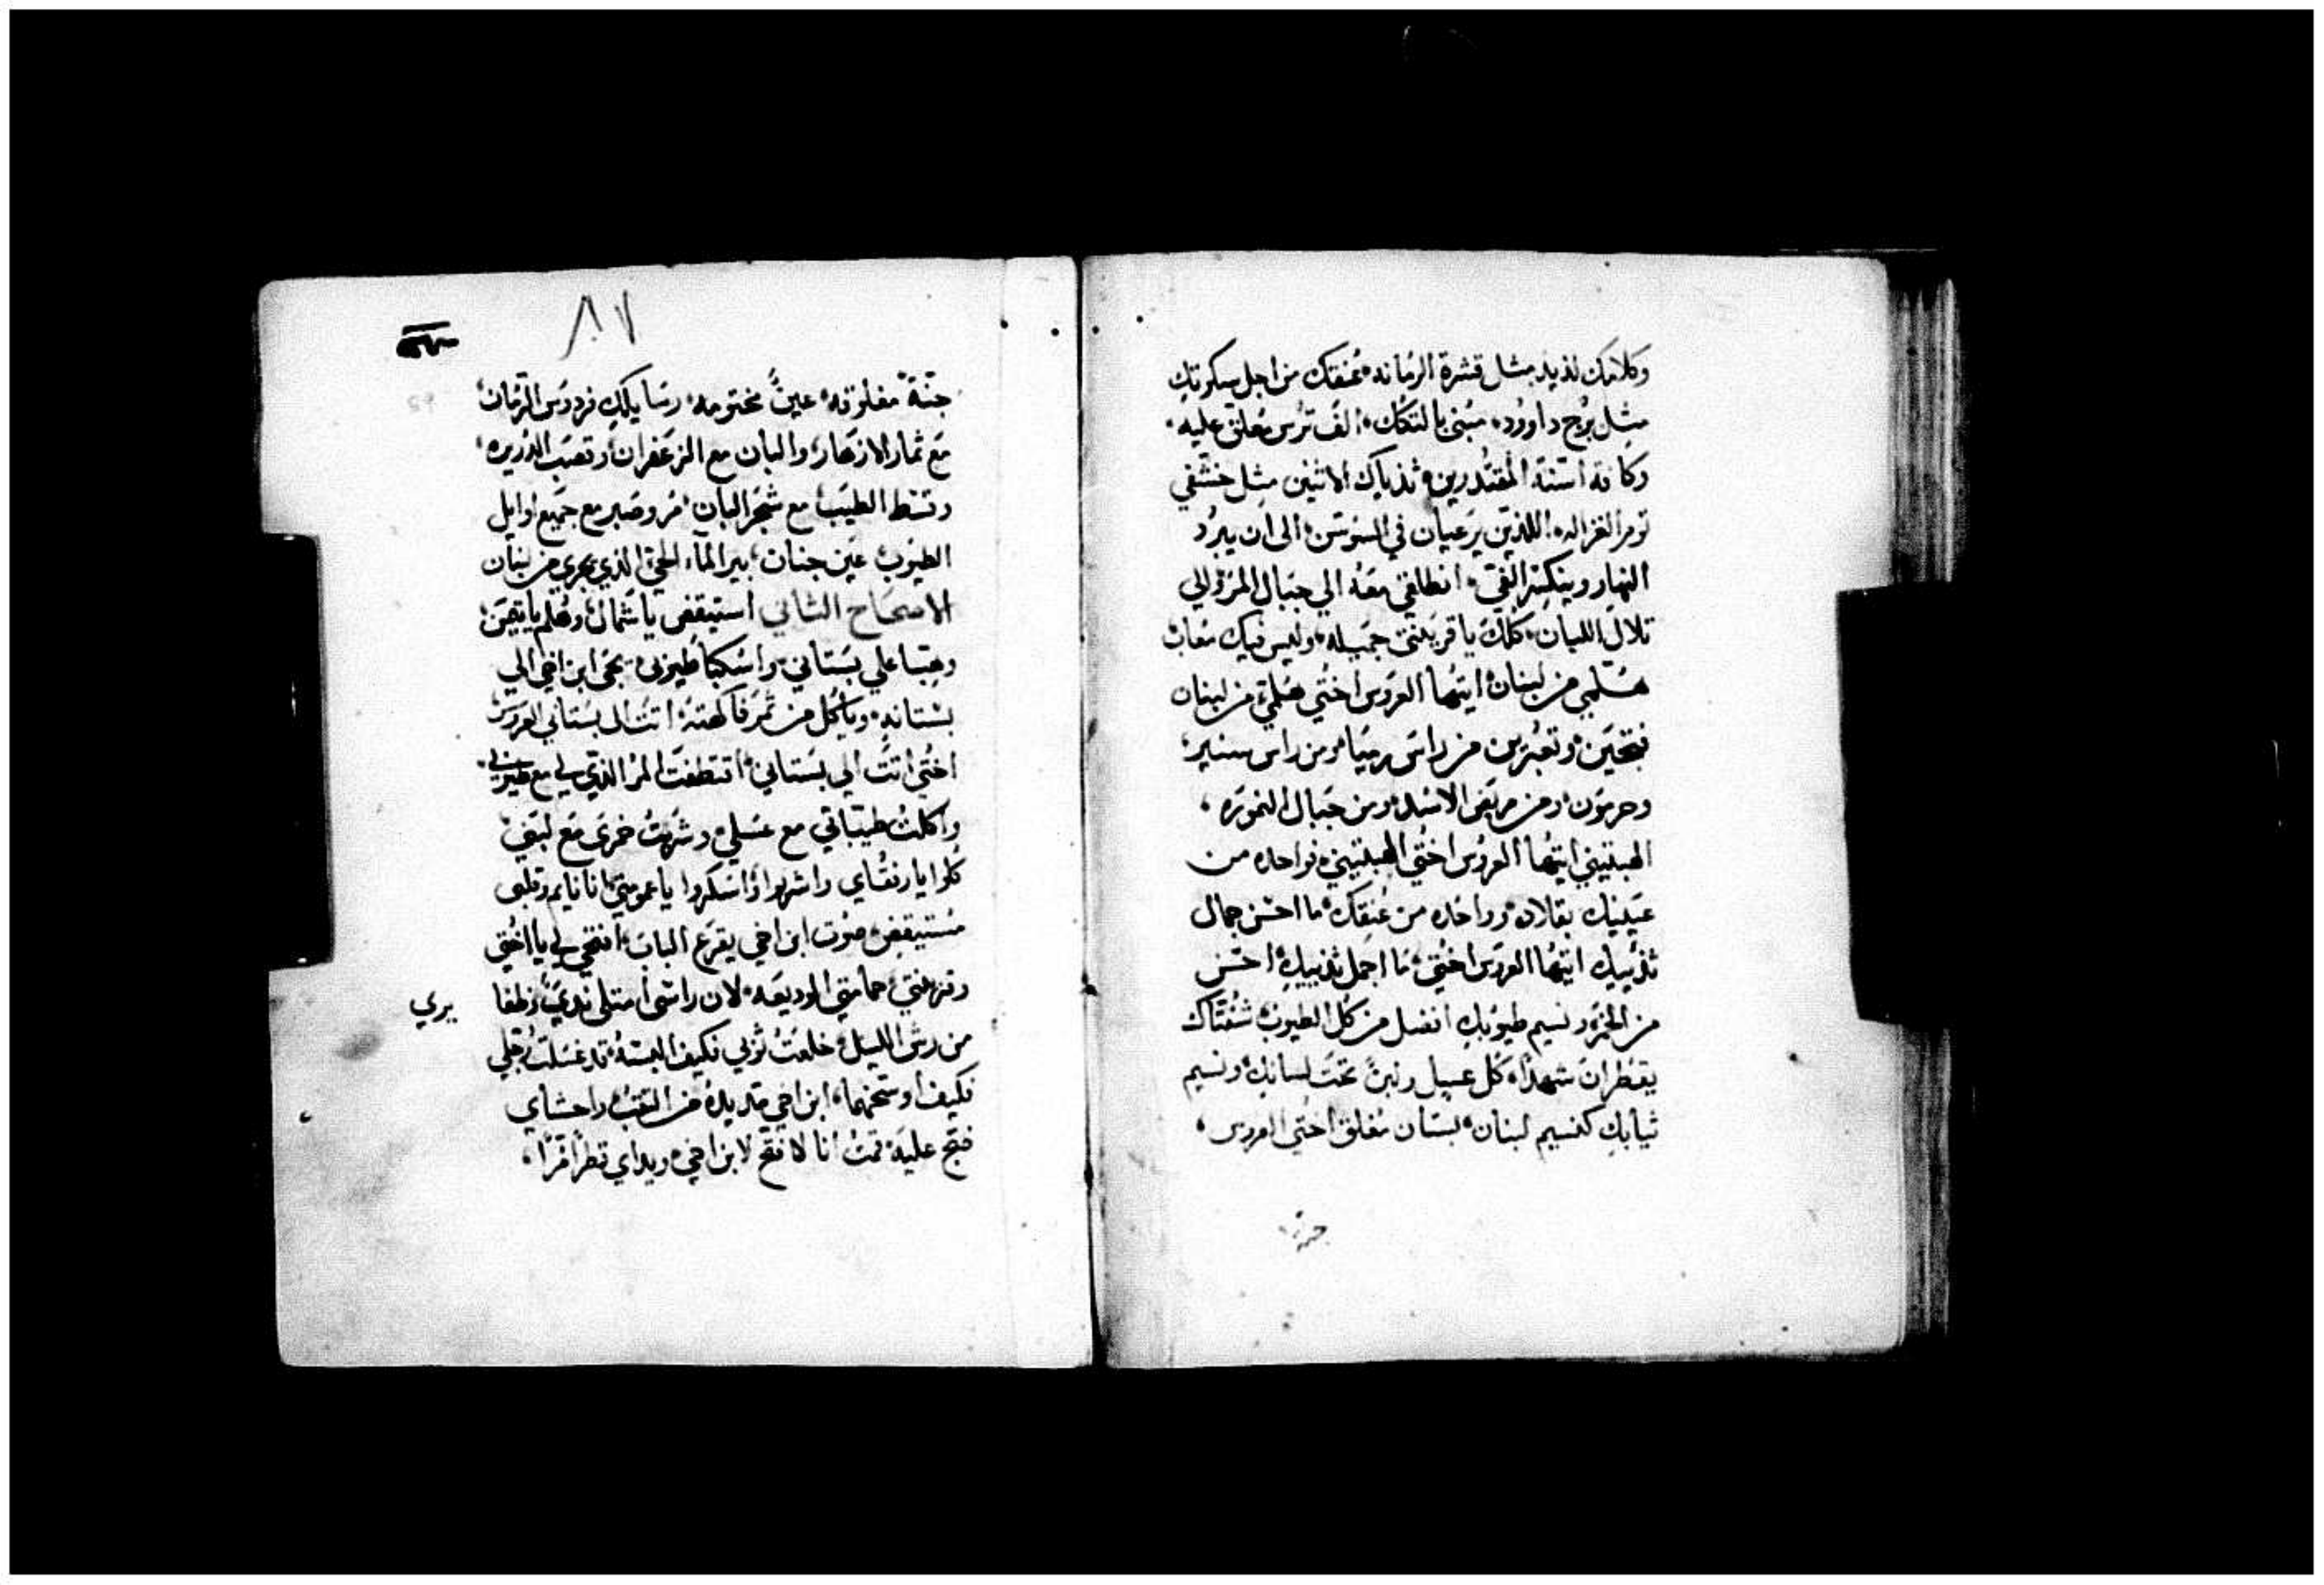 وكلامك لذيذ مثل قشرة الرمانه عنقك من اجل سكوتك
مثل برج داوود، مبنى بالتكك، الف ترس معلق عليه،
وكافة اسنة المقتدرين ثدياك الاثنين مثل خشفي
توم الغزاله، اللذين يرعيان في السوسن، الى ان يبرد
النهار وينكسر الفي، انطلقي معه الي جبال المر والي
تلال اللبان، كلك يا قرينتي جميله، وليس فيك معاب
هلمي من لبنان ايتها العروس اختي هلمي من لبنان
فتجين وتعبرين من راس ومن راس سنير،
وحرمون، ومن مريض الاسد ومن جبال النموره،
ايتها العروس اختي بواحده من
عينيك بقلاده وواحده من عنقك، ما احسن جمال
ثدييك ايتها العروس اختي، ما اجمل ثدييك، احسن
من الخمر، ونسيم طيوبك افضل من كل الطيوب، شفتاك
يقطران شهدا، كل عسل ولبن تحت لسانك، ونسيم
ثيابك كنسيم لبنان، بستان مغلق اختي العروس،
جنة
٨٧
جنة مغلوقه، عين مختومه، رسايلك فردوس الرمان،
مع ثمار الازهار، والبان مع الزعفران، وقصب الذريره،
وقسط الطيب، مع شجر البان، مر وصبر مع جميع اوايل
الطيوب، عين جنات، بير الماء الحي الذي يجري من لبنان
الاصحاح الثاني استيقض يا شمال، وهلم يا تيمن،
وهبا علي بستاني، واسكبا طيوبى، يجى ابن اخي الي
بستانه، وياكل من ثمر فاكهته، اتت الى بستاني العروس
اختي اتت الي بستاني، اقتطفت المر الذي لي مع طيوبي،
واكلت طيباتي مع عسلي، وشربت خمرى مع لبني،
كلوا يا رفقاي واشربوا واسكروا يا عمومتي، انا نايم وقلبى
مستيقض، صوت ابن اخي يقرع الباب، افتحي لي يا اختي
وقرينتي، حمامتي الوديعه، لان راسى امتلى ندي، وظفا
يري
من رش الليل، خلعت ثوبي فكيف البسه، قد غسلت رجلي
فكيف اوسخهما، ابن اخي مد يده من الثقب، واحشاي
فتح عليه، قمت انا لافتح لابن اخي، ويداي تطر مرا،